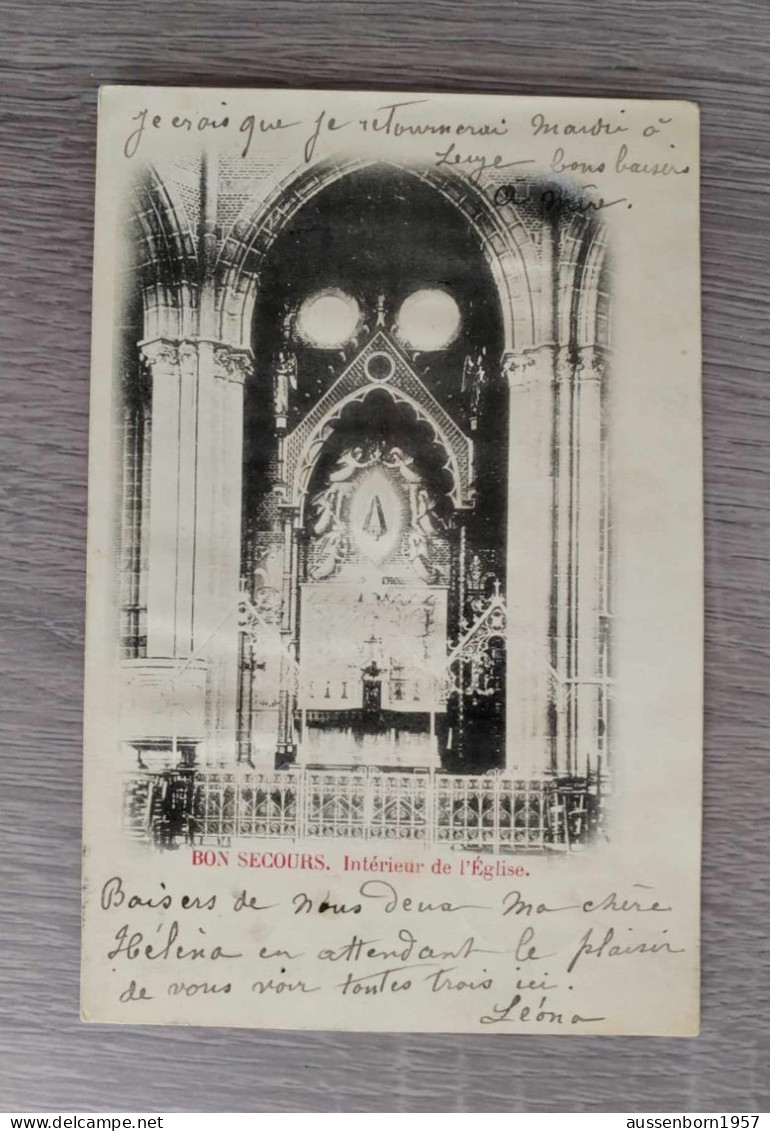 Je crois que je retournerai Mardi à
Leuze bons baisers
à Mère.
BON SECOURS. Intérieur de l'Église.
Baisers de nous deux Ma chère
Héléna en attendant le plaisir
de vous voir toutes trois ici.
Léona
aussenborn1957